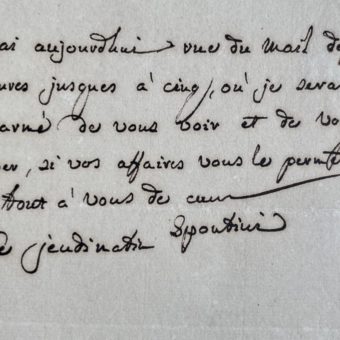 ai aujourdhui rue du Mail de
ures jusques à cinq, où je serai
armé de vous voir et de vo
er, si vos affaires vous le permet
tout à vous de cœur
Ce jeudi matin Spontini